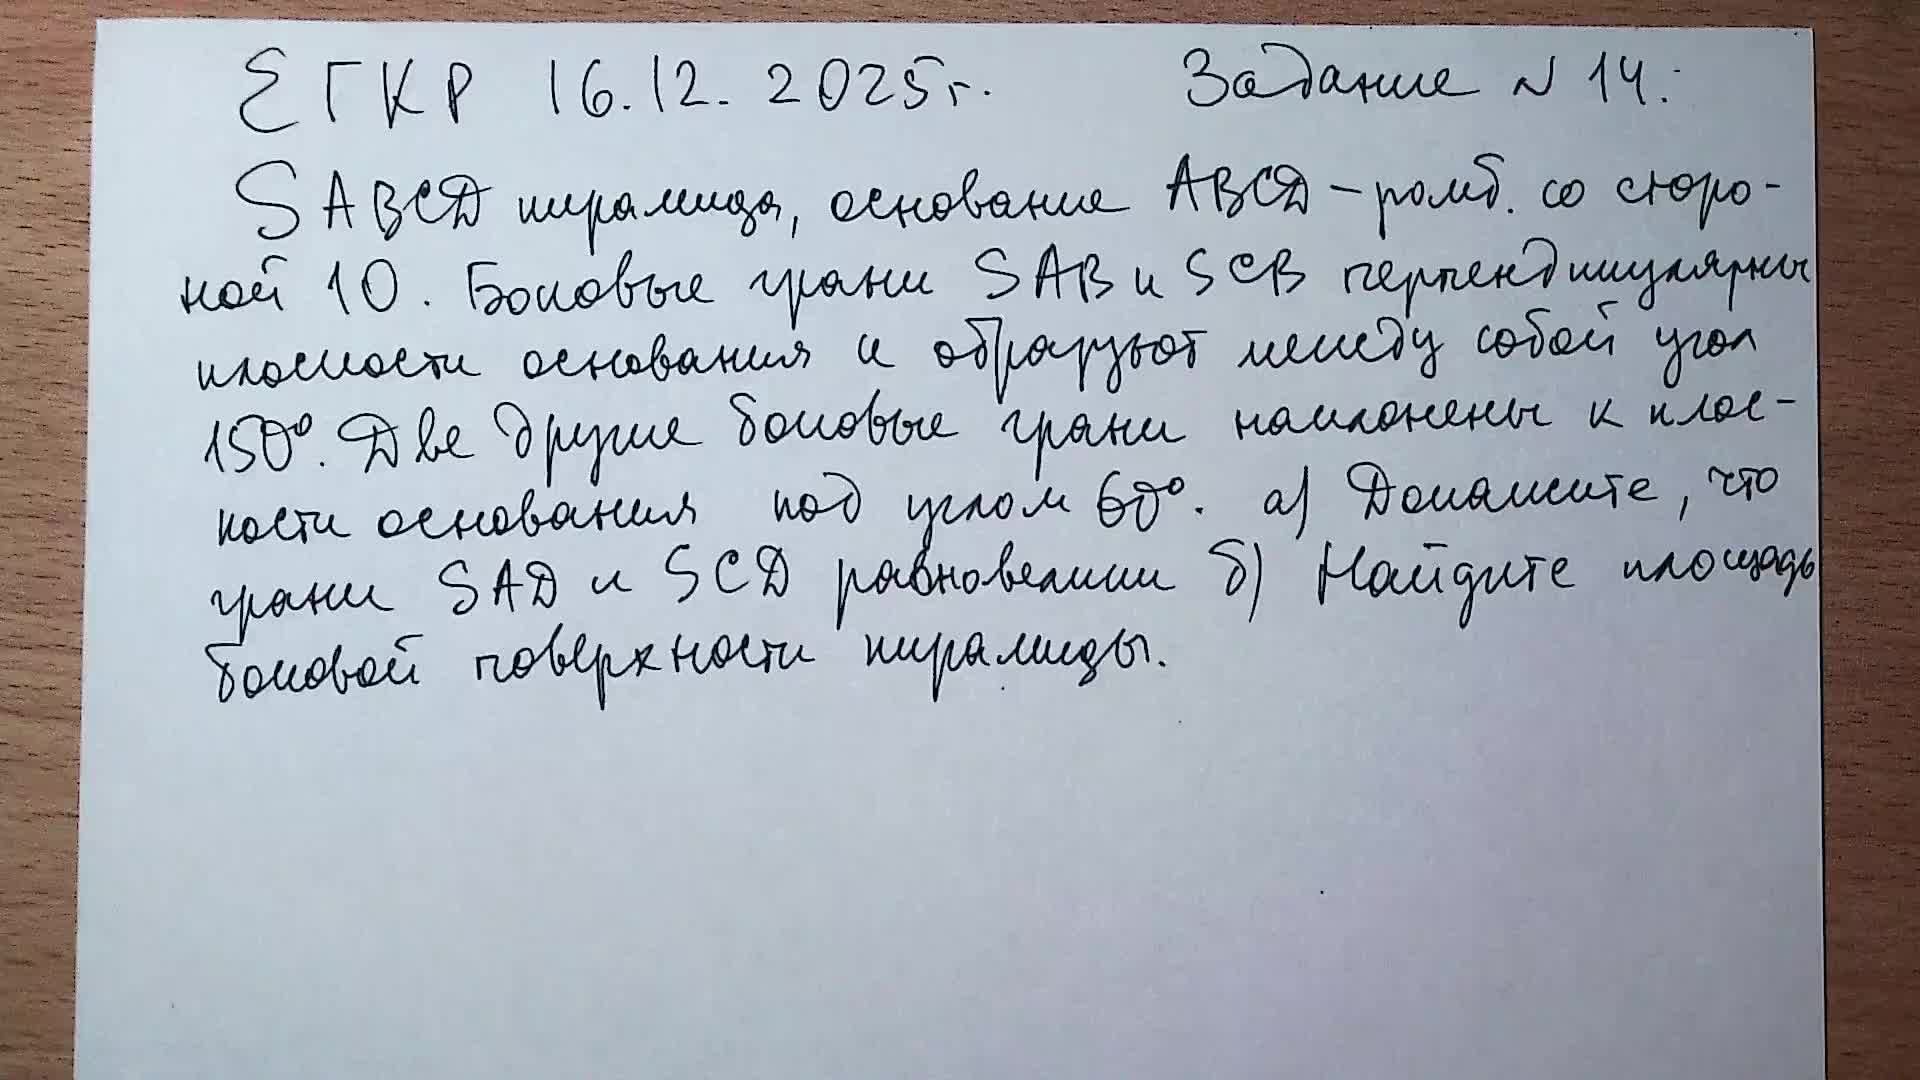 ЕГКР 16.12.2025г. Задание N 14:
SABCD пирамида, основание ABCD – ромб. со сторо-
ной 10. Боковые грани SAB и SCB перпендикулярны
плоскости основания и образуют между собой угол
150°. Две другие боковые грани наклонены к плос-
кости основания под углом 60°. а) Докажите, что
грани SAD и SCD равновелики б) Найдите площадь
боковой поверхности пирамиды.